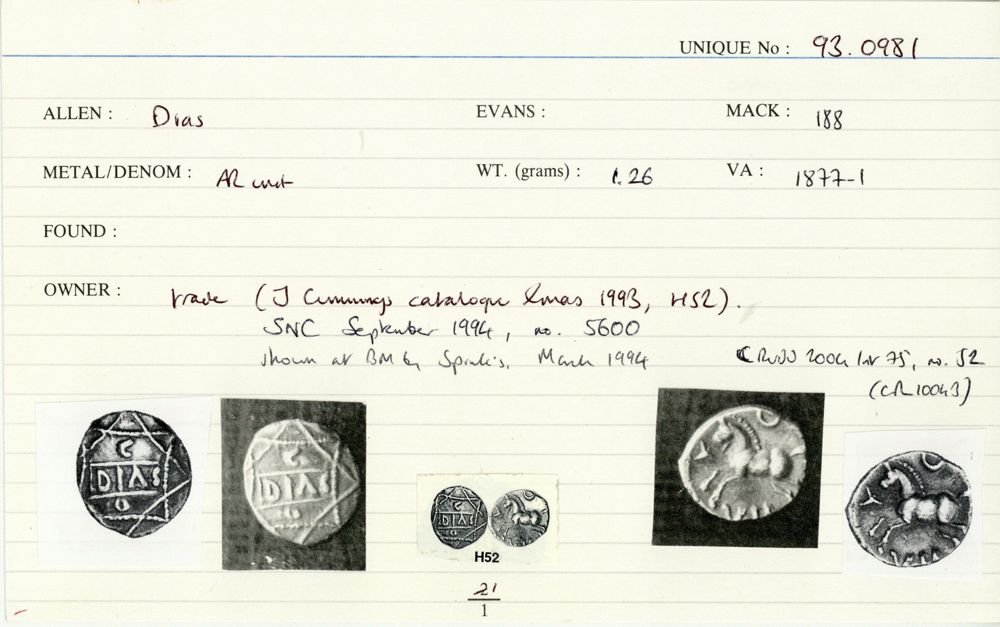 UNIQUE No : 93.0981
ALLEN : Dias EVANS : MACK : 188
METAL/DENOM : AR unit WT. (grams) : 1.26 VA : 1877-1
FOUND :
OWNER : trade (J Cummings catalogue Xmas 1993, H52).
SNC September 1994, no. 5600
shown at BM by Spinks, March 1994
2004 list 75, no. 52
(CR10043)
C
DIAS
O
C
DIAS
O
C
DIAS
O
H52
21
1